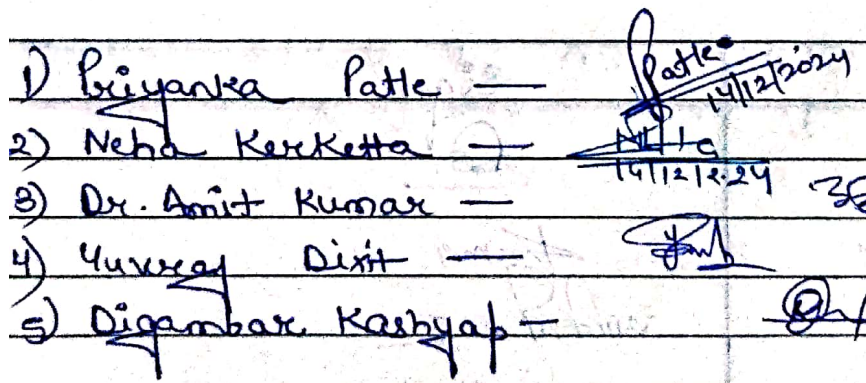 1) Priyanka Patle — Patle 14/12/2024
2) Neha Kerketta — Neha 14/12/2024
3) Dr. Amit Kumar —
4) Yuvraj Dixit —
5) Digambar Kashyap —